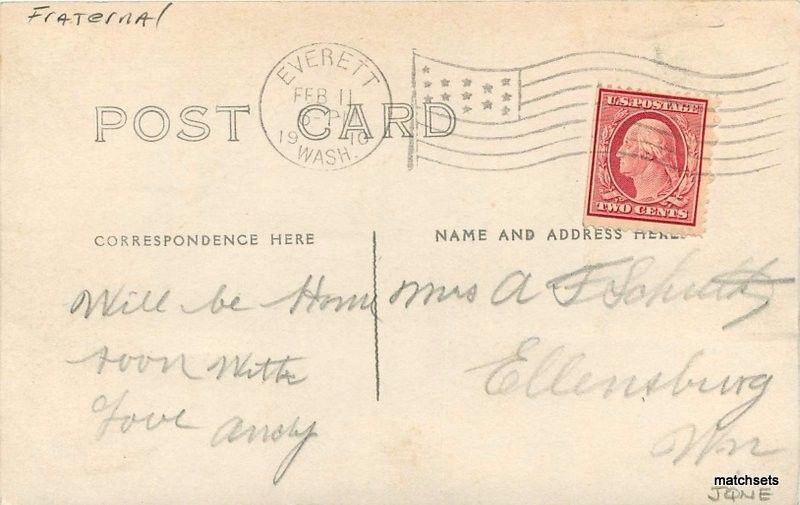 Fraternal
EVERETT
FEB 11
1910
WASH.
POST CARD
U.S. POSTAGE
TWO CENTS
CORRESPONDENCE HERE
NAME AND ADDRESS HERE
Will be Home
soon With
Love Andy
Mrs A F
Ellensburg
Wn
matchsets
JUNE